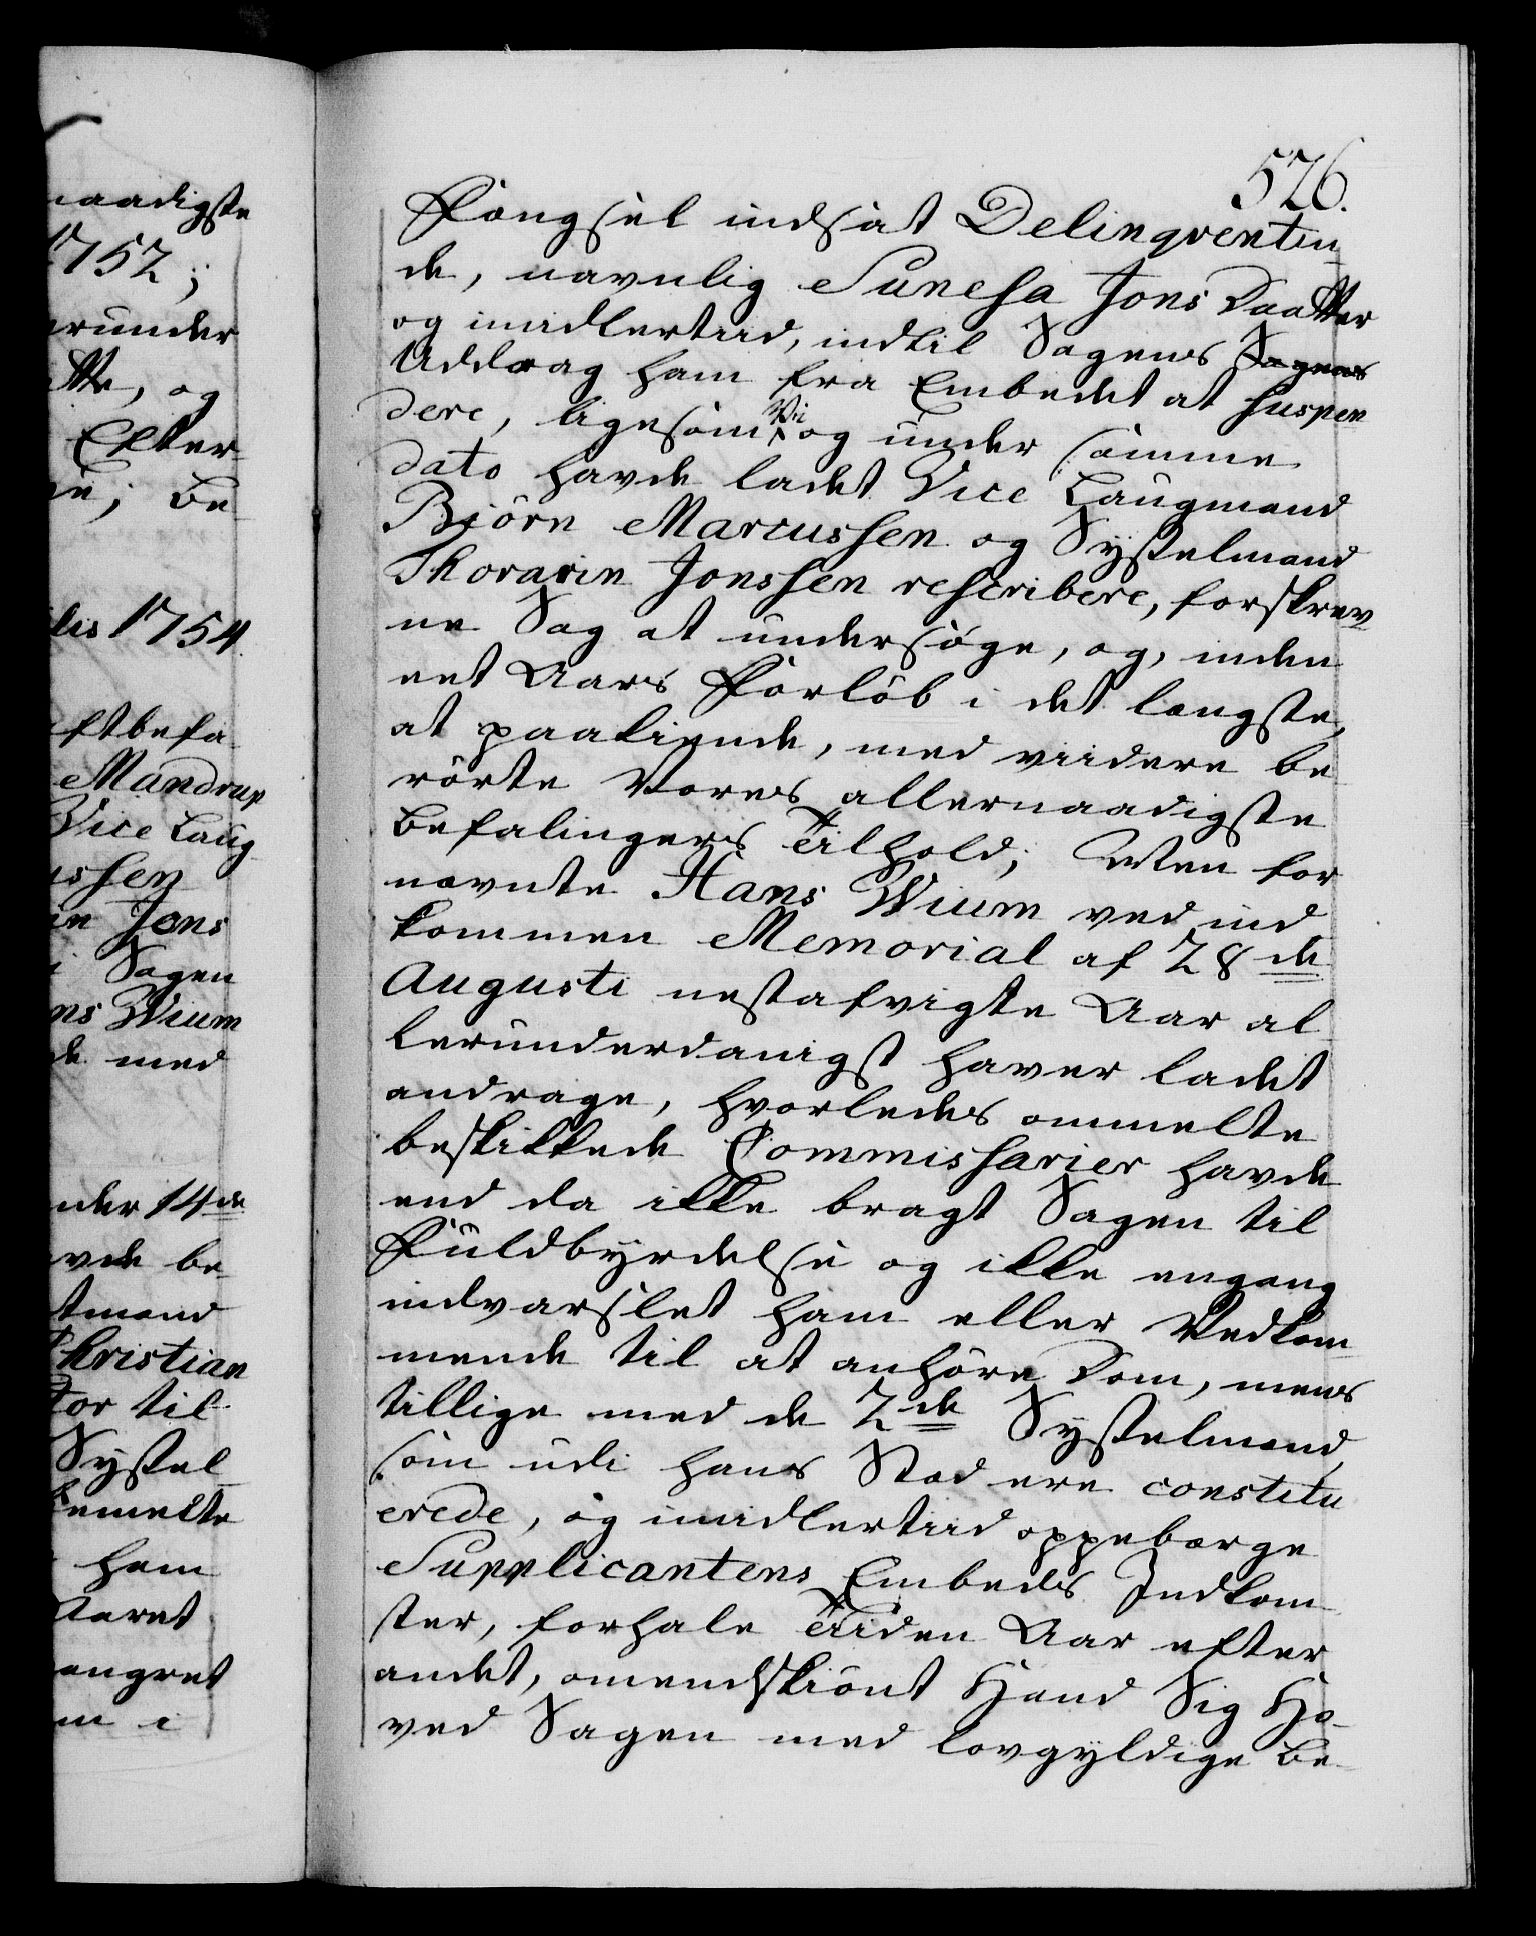 naadigste
1752;
runder
tte, og
Efter
be
lis 1754.
ftbefa
Mandrup
Vice Laug
ssen
in Jons
i Sagen
ns Wium
de med
nder 14de
vde be
tmand
Christian
tor til
Syssel
bemelte
ham
Aaret
angret
m i
526.
Fængsel indsat Delinqventin
de, navnlig Sunefa Jons Daatter
og imidlertiid, indtil Sagens Sagens
Uddrag ham fra Embedet at suspen
dere, ligesom Vi og under samme
dato havde ladet Vice Laugmand
Björn Marcussen og Sysselmand
Thorarin Jonssen rescribere, forskrev
ne Sag at undersøge, og, inden
eet Aars Forløb i det længste,
at paakiende, med viidere be
rørte Vores allernaadigste
Befalingers Tilhold; Men for
nævnte Hans Wium ved ind
kommen Memorial af 28de
Augusti nestafvigte Aar al
lerunderdanigst haver ladet
andrage, hvorledes ommelte
beskikkede Commissarier havde
end da ikke bragt Sagen til
Fuldbyrdelse og ikke engang
indvarslet ham eller Vedkom
mende til at anhøre Dom, mens
tillige med de 2de Sysselmænd,
som udi hans Stad ere constitu
erede, og imidlertiid oppebærge
Supplicantens Embeds Indkom
ster, forhale Tiiden Aar efter
andet, omendskiønt Hand Sig Ho-
ved Sagen med lovgyldige Be-